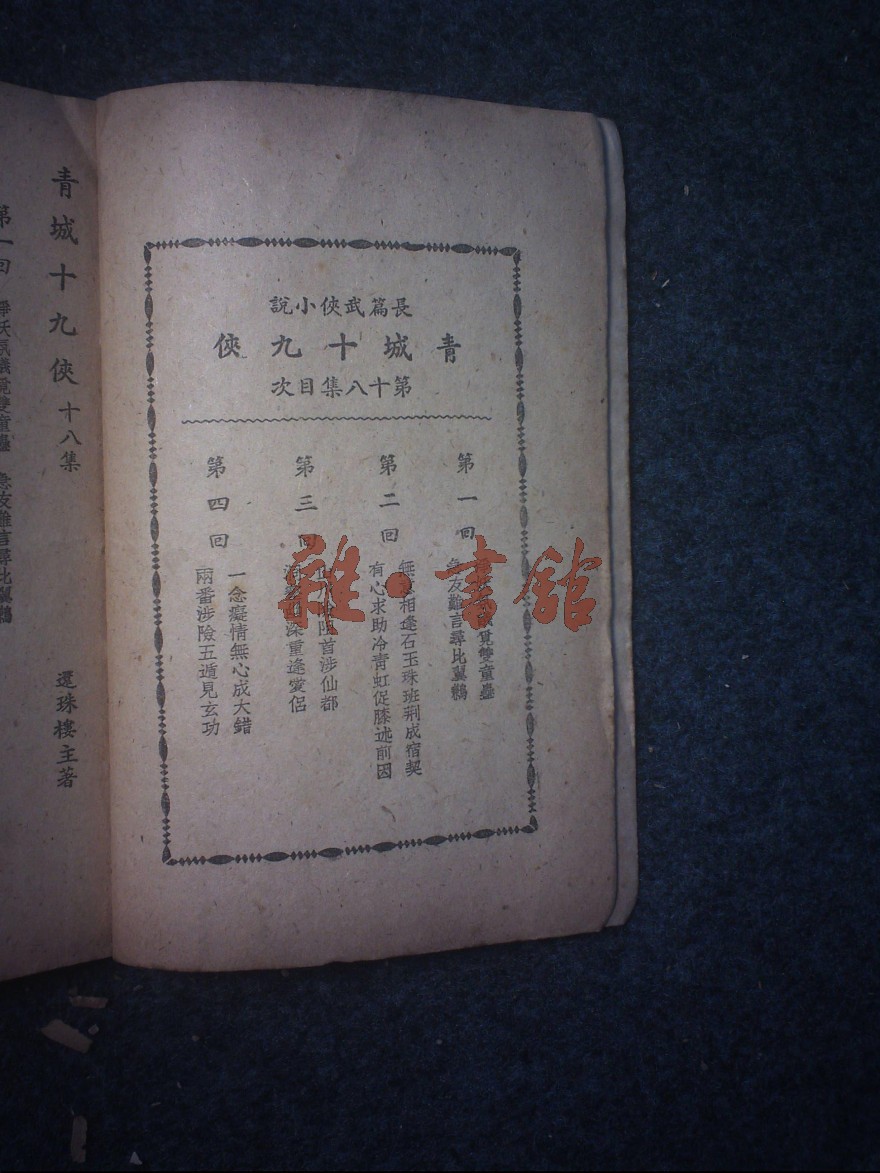 長篇武俠小說
青城十九俠
第十八集目次
第一回
覓雙童蠱
急友難言尋比翼鶼
第二回
無 相逢石玉珠班荆成宿契
有心求助冷青虹促膝述前因
第三回
首涉仙都
深重逢愛侶
第四回
一念癡情無心成大錯
兩番涉險五遁見玄功
雜·書館
青城十九俠 十八集
還珠樓主著
第一回 雙童蠱 急友難言尋比翼鶼